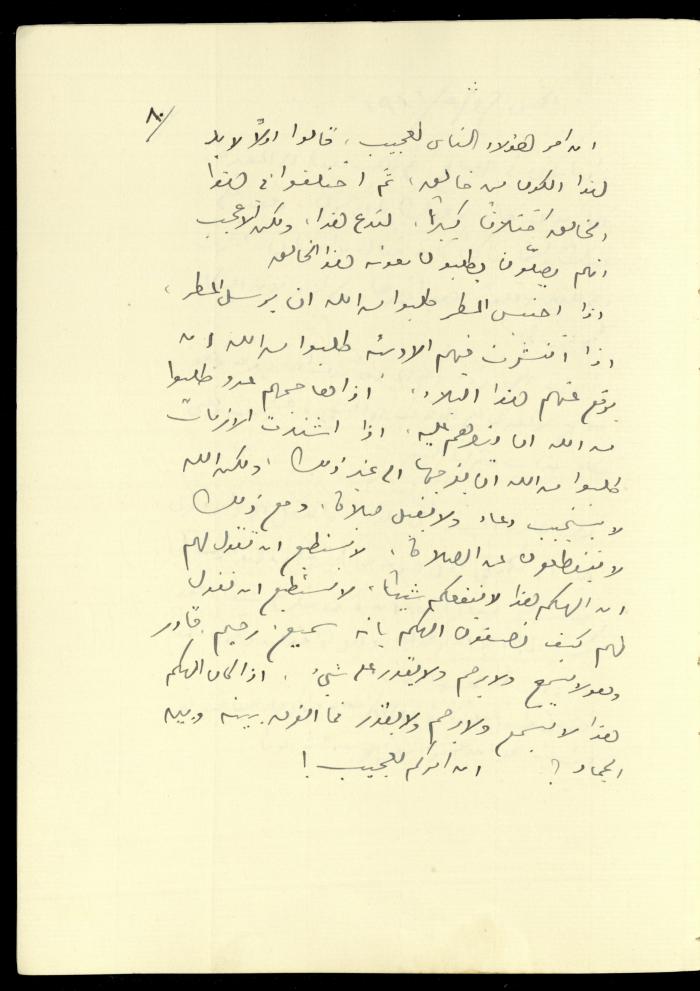 ٨٠/
ان امر هؤلاء الناس لعجيب، قالوا اولاً لا بد
لهذا الكون من خالق، ثم اختلفوا في هذا
الخالق اختلافاً كبيراً. لندع هذا، ولكن الاعجب
انهم يصلّون يطلبون معونة هذا الخالق
اذا احتبس المطر طلبوا من الله ان يرسل المطر،
اذا انتشرت فيهم الاوبئة طلبوا من الله ان
يرفع عنهم هذا البلاء. اذا هاجمهم عدو طلبوا
من الله ان ينصرهم عليه. اذا اشتدت الازمات
طلبوا من الله ان يفرجها الى غير ذلك، ولكن الله
لا يستجيب دعاء ولا يقبل صلاة، ومع ذلك
لا ينقطعون عن الصلاة. لا نستطيع ان نقول لهم
ان الهكم هذا لا ينفعكم شيئاً، لا نستطيع ان نقول
لهم كيف تصفون الهكم بانه سميع، رحيم، قادر
وهو لا يسمع ولا يرحم ولا يقدر على شيء. اذا كان الهكم
هذا لا يسمع ولا يرحم ولا يقدر فما الفرق بينه وبين
الجماد؟ ان امركم لعجيب!